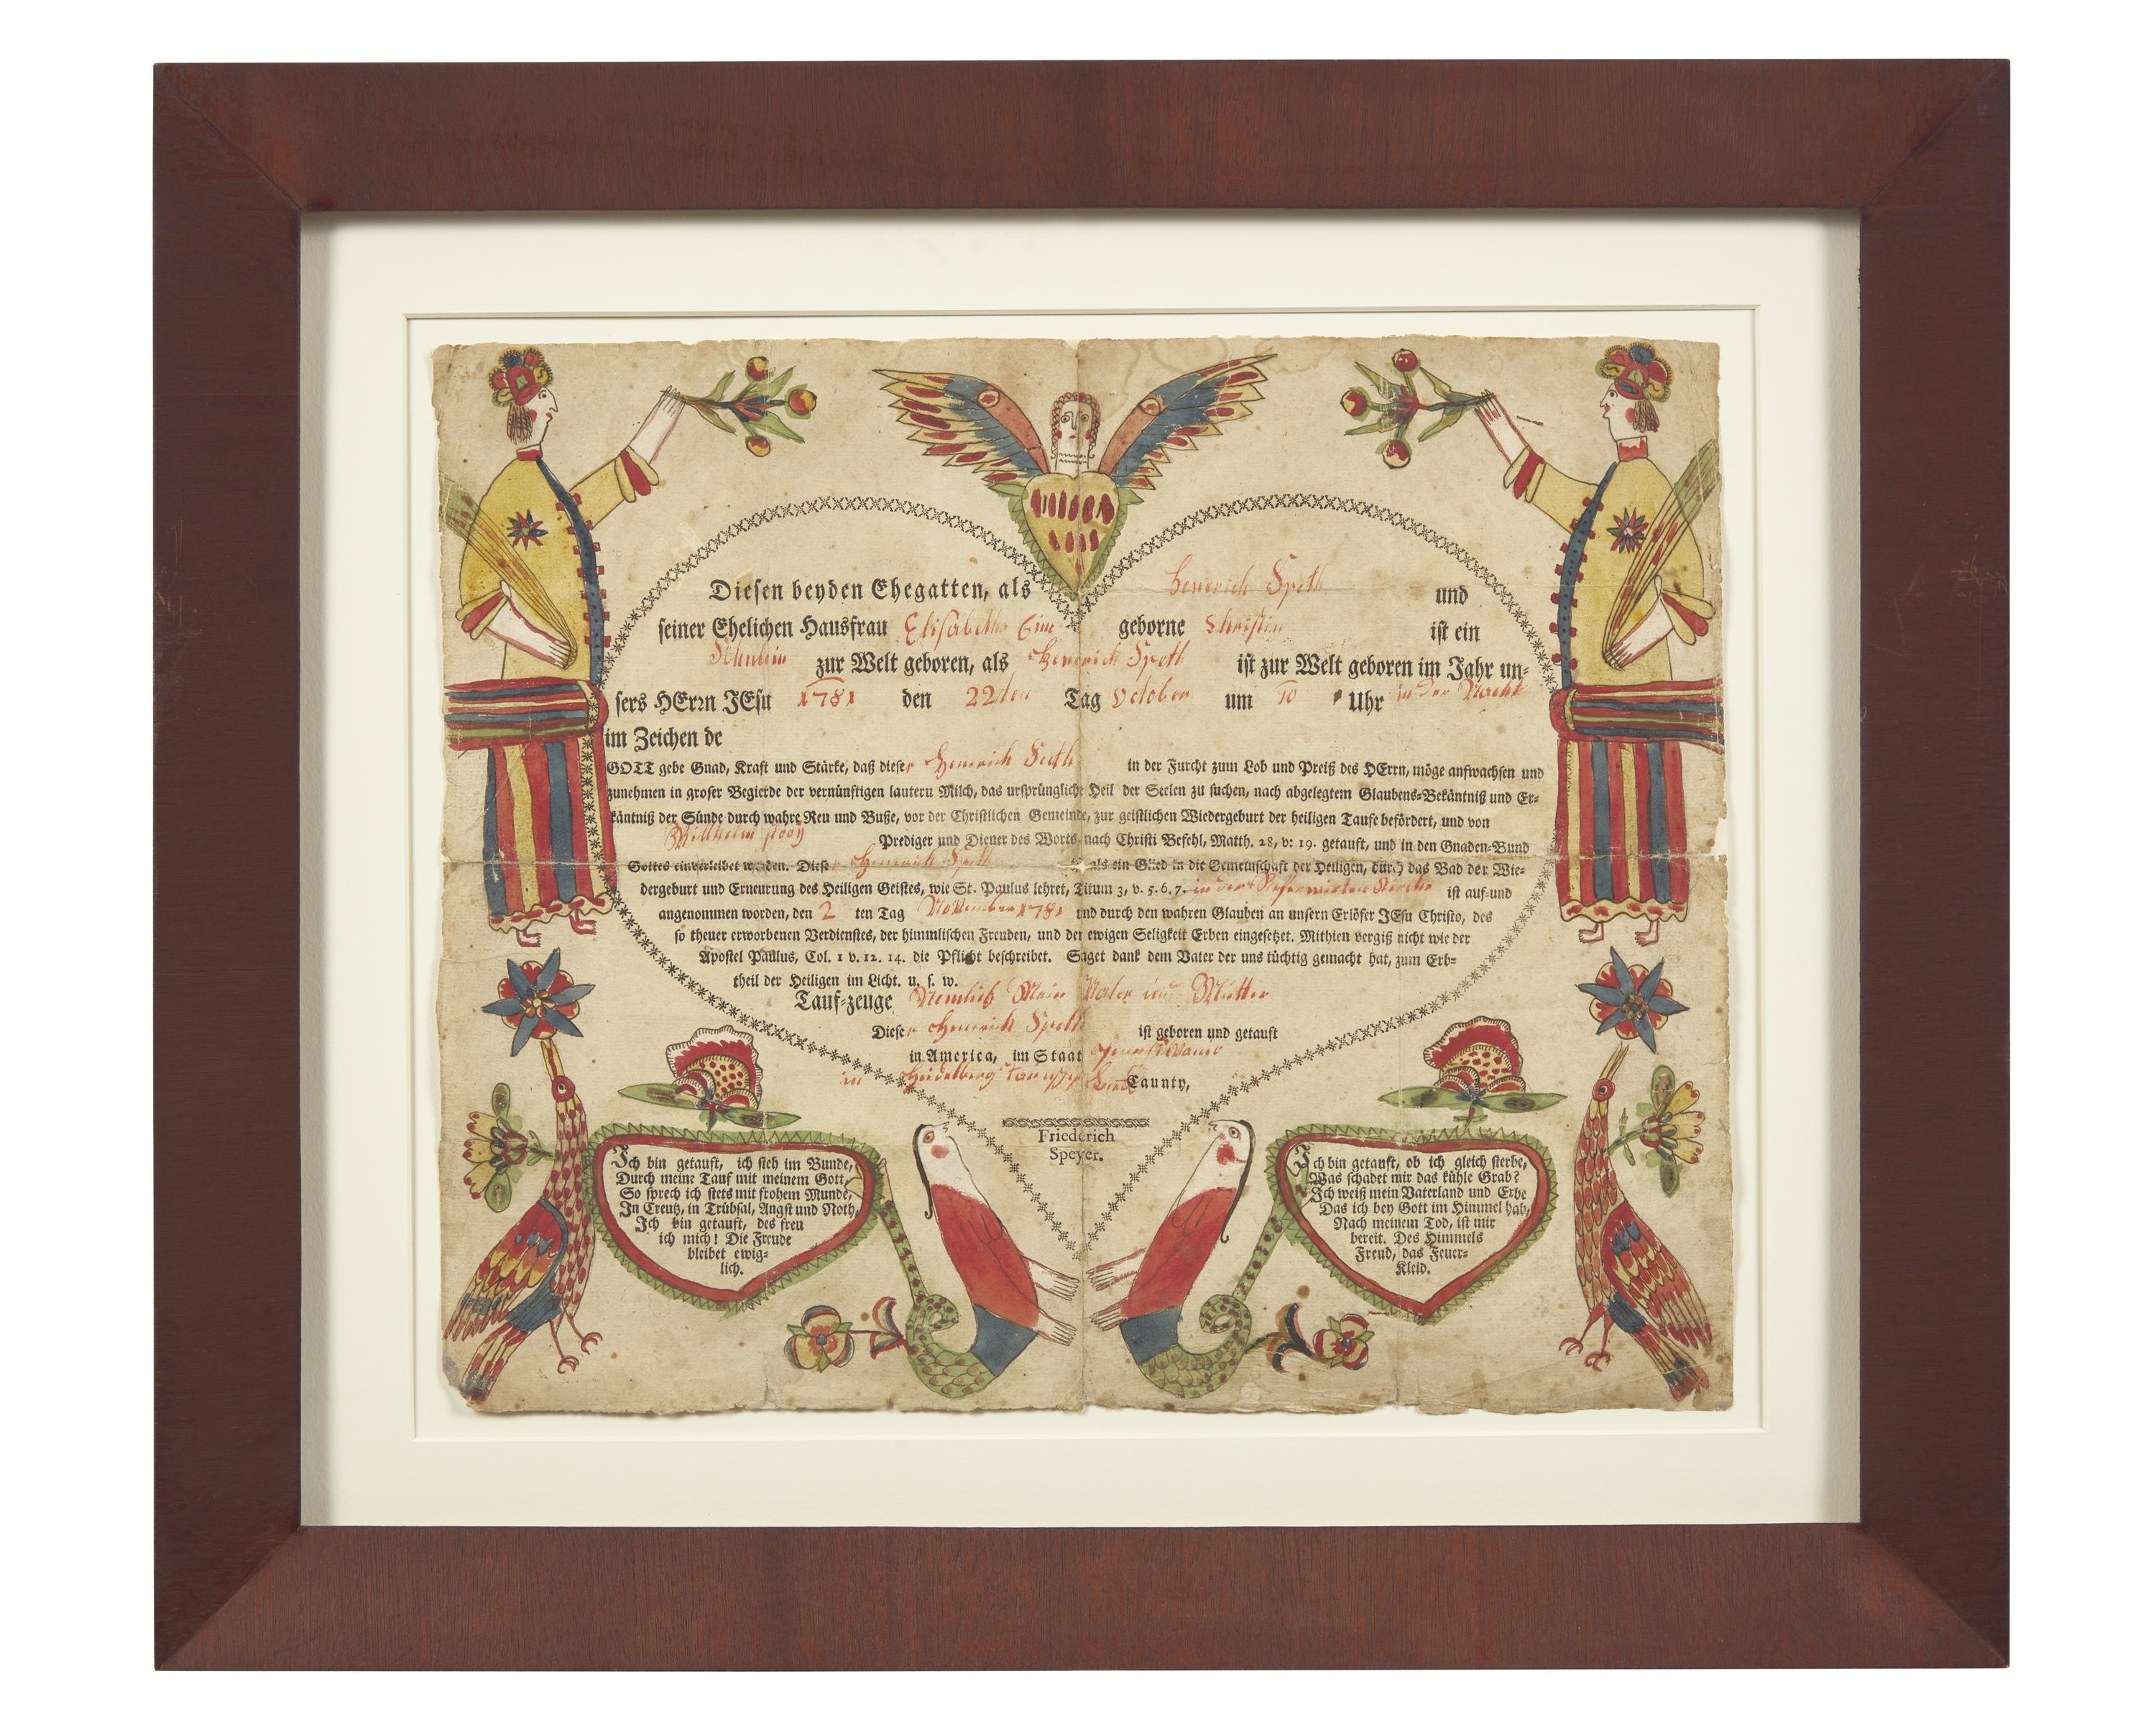 Diesen beyden Ehegatten, als Henrich Speth und
seiner Ehelichen Hausfrau Elisabeth geborne ist ein
Söhnlein zur Welt geboren, als Henrich Speth ist zur Welt geboren im Jahr un-
sers HErrn JEsu 1781 den 22ten Tag October um 10 Uhr in der Nacht
im Zeichen de
GOTT gebe Gnad, Kraft und Stärke, daß dieser Henrich Speth in der Furcht zum Lob und Preiß des HErrn, möge anfwachsen und
zunehmen in groser Begierde der vernünftigen lautern Milch, das ursprüngliche Heil der Seelen zu suchen, nach abgelegtem Glaubens-Bekäntniß und Er-
käntniß der Sünde durch wahre Reu und Buße, vor der Christlichen Gemeinde, zur geistlichen Wiedergeburt der heiligen Taufe befördert, und von
Willhelm Prediger und Diener des Worts, nach Christi Befehl, Matth. 28, v: 19. getauft, und in den Gnaden-Bund
Gottes einverleibet worden. Dieser Henrich Speth als ein Glied in die Gemeinschaft der Heiligen, durch das Bad der Wie-
dergeburt und Erneurung des Heiligen Geistes, wie St. Paulus lehret, Titum 3, v. 5. 6. 7. in der Kirche ist auf-und
angenommen worden, den 2 ten Tag November 1781 und durch den wahren Glauben an unsern Erlöser JEsu Christo, des
so theuer erworbenen Verdienstes, der himmlischen Freuden, und der ewigen Seligkeit Erben eingesetzet. Mithien vergiß nicht wie der
Apostel Paulus, Col. 1 v. 12. 14. die Pflicht beschreibet. Saget dank dem Vater der uns tüchtig gemacht hat, zum Erb-
theil der Heiligen im Licht. u. s. w.
Tauf-zeuge Nemlich Mein Vater und Mutter
Dieser Henrich Speth ist geboren und getauft
in America, im Staat
in Heidelberg Caunty,
Friederich
Speyer.
Ich bin getauft, ich steh im Bunde,
Durch meine Tauf mit meinem Gott,
So sprech ich stets mit frohem Munde,
In Creutz, in Trübsal, Angst und Noth,
Ich bin getauft, des freu
ich mich! Die Freude
bleibet ewig-
lich.
Ich bin getauft, ob ich gleich sterbe,
Was schadet mir das kühle Grab?
Ich weiß mein Vaterland und Erbe
Das ich bey Gott im Himmel hab,
Nach meinem Tod, ist mir
bereit. Des Himmels
Freud, das Feuer-
Kleid.